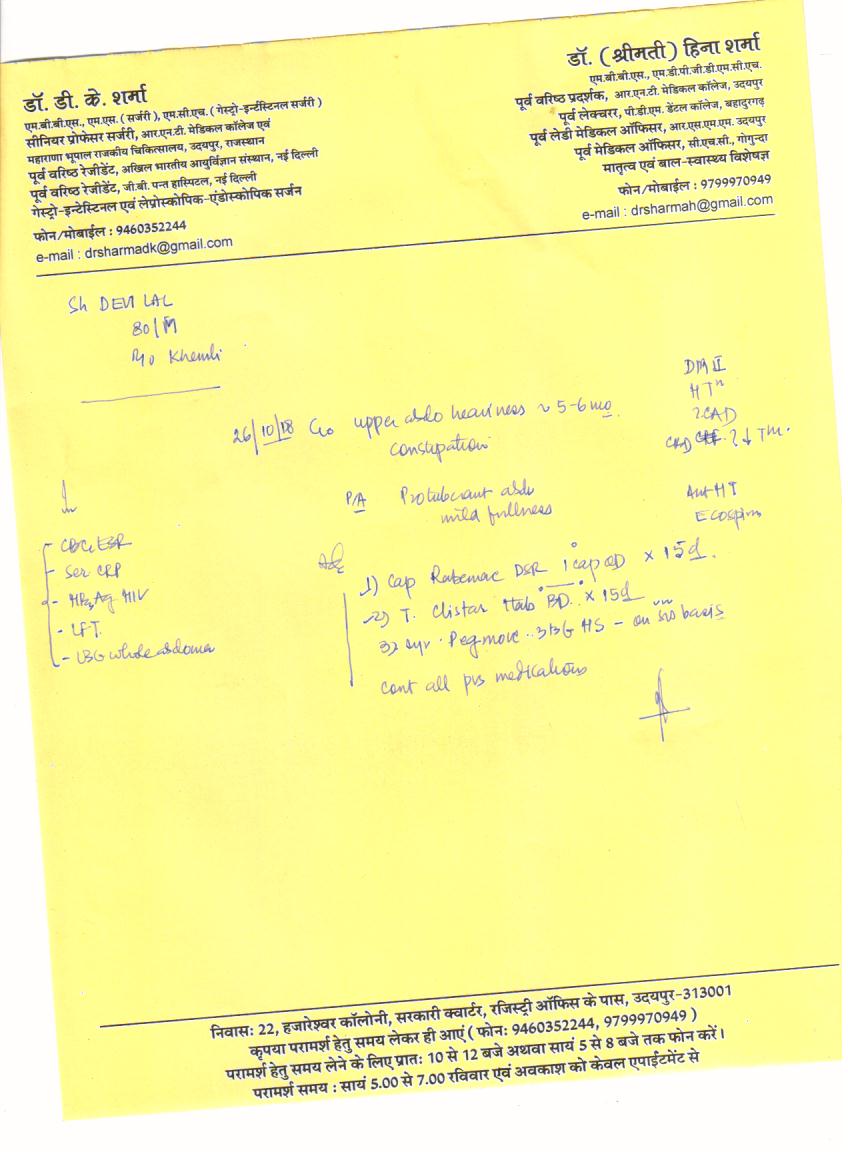 डॉ. डी. के. शर्मा
एम.बी.बी.एस., एम.एस. ( सर्जरी ), एम.सी.एच. ( गेस्ट्रो-इन्टेंस्टिनल सर्जरी )
सीनियर प्रोफेसर सर्जरी, आर.एन.टी. मेडिकल कॉलेज एवं
महाराणा भूपाल राजकीय चिकित्सालय, उदयपुर, राजस्थान
पूर्व वरिष्ठ रेजीडेंट, अखिल भारतीय आयुर्विज्ञान संस्थान, नई दिल्ली
पूर्व वरिष्ठ रेजीडेंट, जी.बी. पन्त हास्पिटल, नई दिल्ली
गेस्ट्रो-इन्टेस्टिनल एवं लेप्रोस्कोपिक-एंडोस्कोपिक सर्जन
फोन/मोबाईल : 9460352244
e-mail : drsharmadk@gmail.com
डॉ. (श्रीमती) हिना शर्मा
एम.बी.बी.एस., एम.डी.पी.जी.डी.एम.सी.एच.
पूर्व वरिष्ठ प्रदर्शक, आर.एन.टी. मेडिकल कॉलेज, उदयपुर
पूर्व लेक्चरर, पी.डी.एम. डेंटल कॉलेज, बहादुरगढ़
पूर्व लेडी मेडिकल ऑफिसर, आर.एस.एम.एम. उदयपुर
पूर्व मेडिकल ऑफिसर, सी.एच.सी., गोगुन्दा
मातृत्व एवं बाल-स्वास्थ्य विशेषज्ञ
फोन/मोबाईल : 9799970949
e-mail : drsharmah@gmail.com
Sh DEVI LAL
80/M
R/o Khemli
DM II
HTn
?CAD
26/10/18 C/o upper abdo heaviness ~ 5-6 mo.
constipation
P/A Protuberant abdo
mild fullness
Anti HT
Ecosprin
- CBC ESR
- Ser CRP
- HBsAg HIV
- LFT.
- USG whole abdomen
Adv
1) Cap Rabemac DSR 1 cap OD x 15d.
2) T. Clistar 1 tab BD. x 15d
3) Syr. Pegmove HS - on basis
cont all pvs medications
निवासः 22, हजारेश्वर कॉलोनी, सरकारी क्वार्टर, रजिस्ट्री ऑफिस के पास, उदयपुर-313001
कृपया परामर्श हेतु समय लेकर ही आएं ( फोनः 9460352244, 9799970949 )
परामर्श हेतु समय लेने के लिए प्रातः 10 से 12 बजे अथवा सायं 5 से 8 बजे तक फोन करें।
परामर्श समय : सायं 5.00 से 7.00 रविवार एवं अवकाश को केवल एपाईंटमेंट से